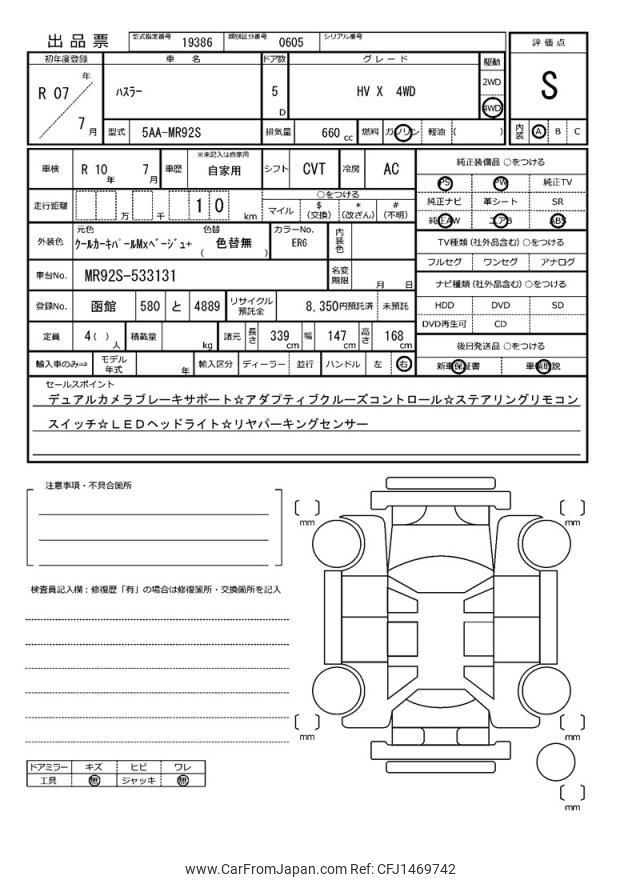 出品票
型式指定番号 19386 類別区分番号 0605 シリアル番号
評価点
初年度登録 車名 ドア数 グレード 駆動
R 07 年 7 月
ハスラー 5 D HV X 4WD
2WD
4WD
S
型式 5AA-MR92S 排気量 660 cc 燃料 ガソリン 軽油 ( )
内装 A B C
車検 R 10 年 7 月 車歴 ※未記入は自家用 自家用 シフト CVT 冷房 AC
純正装備品 ○をつける
PS PW 純正TV
純正ナビ 革シート SR
純正AW エアB ABS
走行距離 万 千 1 0 km
○をつける
マイル $(交換) *(改ざん) #(不明)
外装色 元色 クールカーキパールMxベージュ+ 色替 ( 色替無 ) カラーNo. ERG 内装色
TV種類 (社外品含む) ○をつける
フルセグ ワンセグ アナログ
車台No. MR92S-533131 名変期限 月 日
ナビ種類 (社外品含む) ○をつける
HDD DVD SD
DVD再生可 CD
登録No. 函館 580 と 4889 リサイクル預託金 8,350円預託済 未預託
定員 4( ) 人 積載量 kg 諸元 長さ 339 cm 幅 147 cm 高さ 168 cm
後日発送品 ○をつける
新車保証書 車輌取説
輸入車のみ⇒ モデル年式 年 輸入区分 ディーラー 並行 ハンドル 左 右
セールスポイント
デュアルカメラブレーキサポート☆アダプティブクルーズコントロール☆ステアリングリモコン
スイッチ☆LEDヘッドライト☆リヤパーキングセンサー
注意事項・不具合箇所
mm
mm
検査員記入欄：修復歴「有」の場合は修復箇所・交換箇所を記入
mm
mm
mm
ドアミラー キズ ヒビ ワレ
工具 無 ジャッキ 無
www.CarFromJapan.com Ref: CFJ1469742